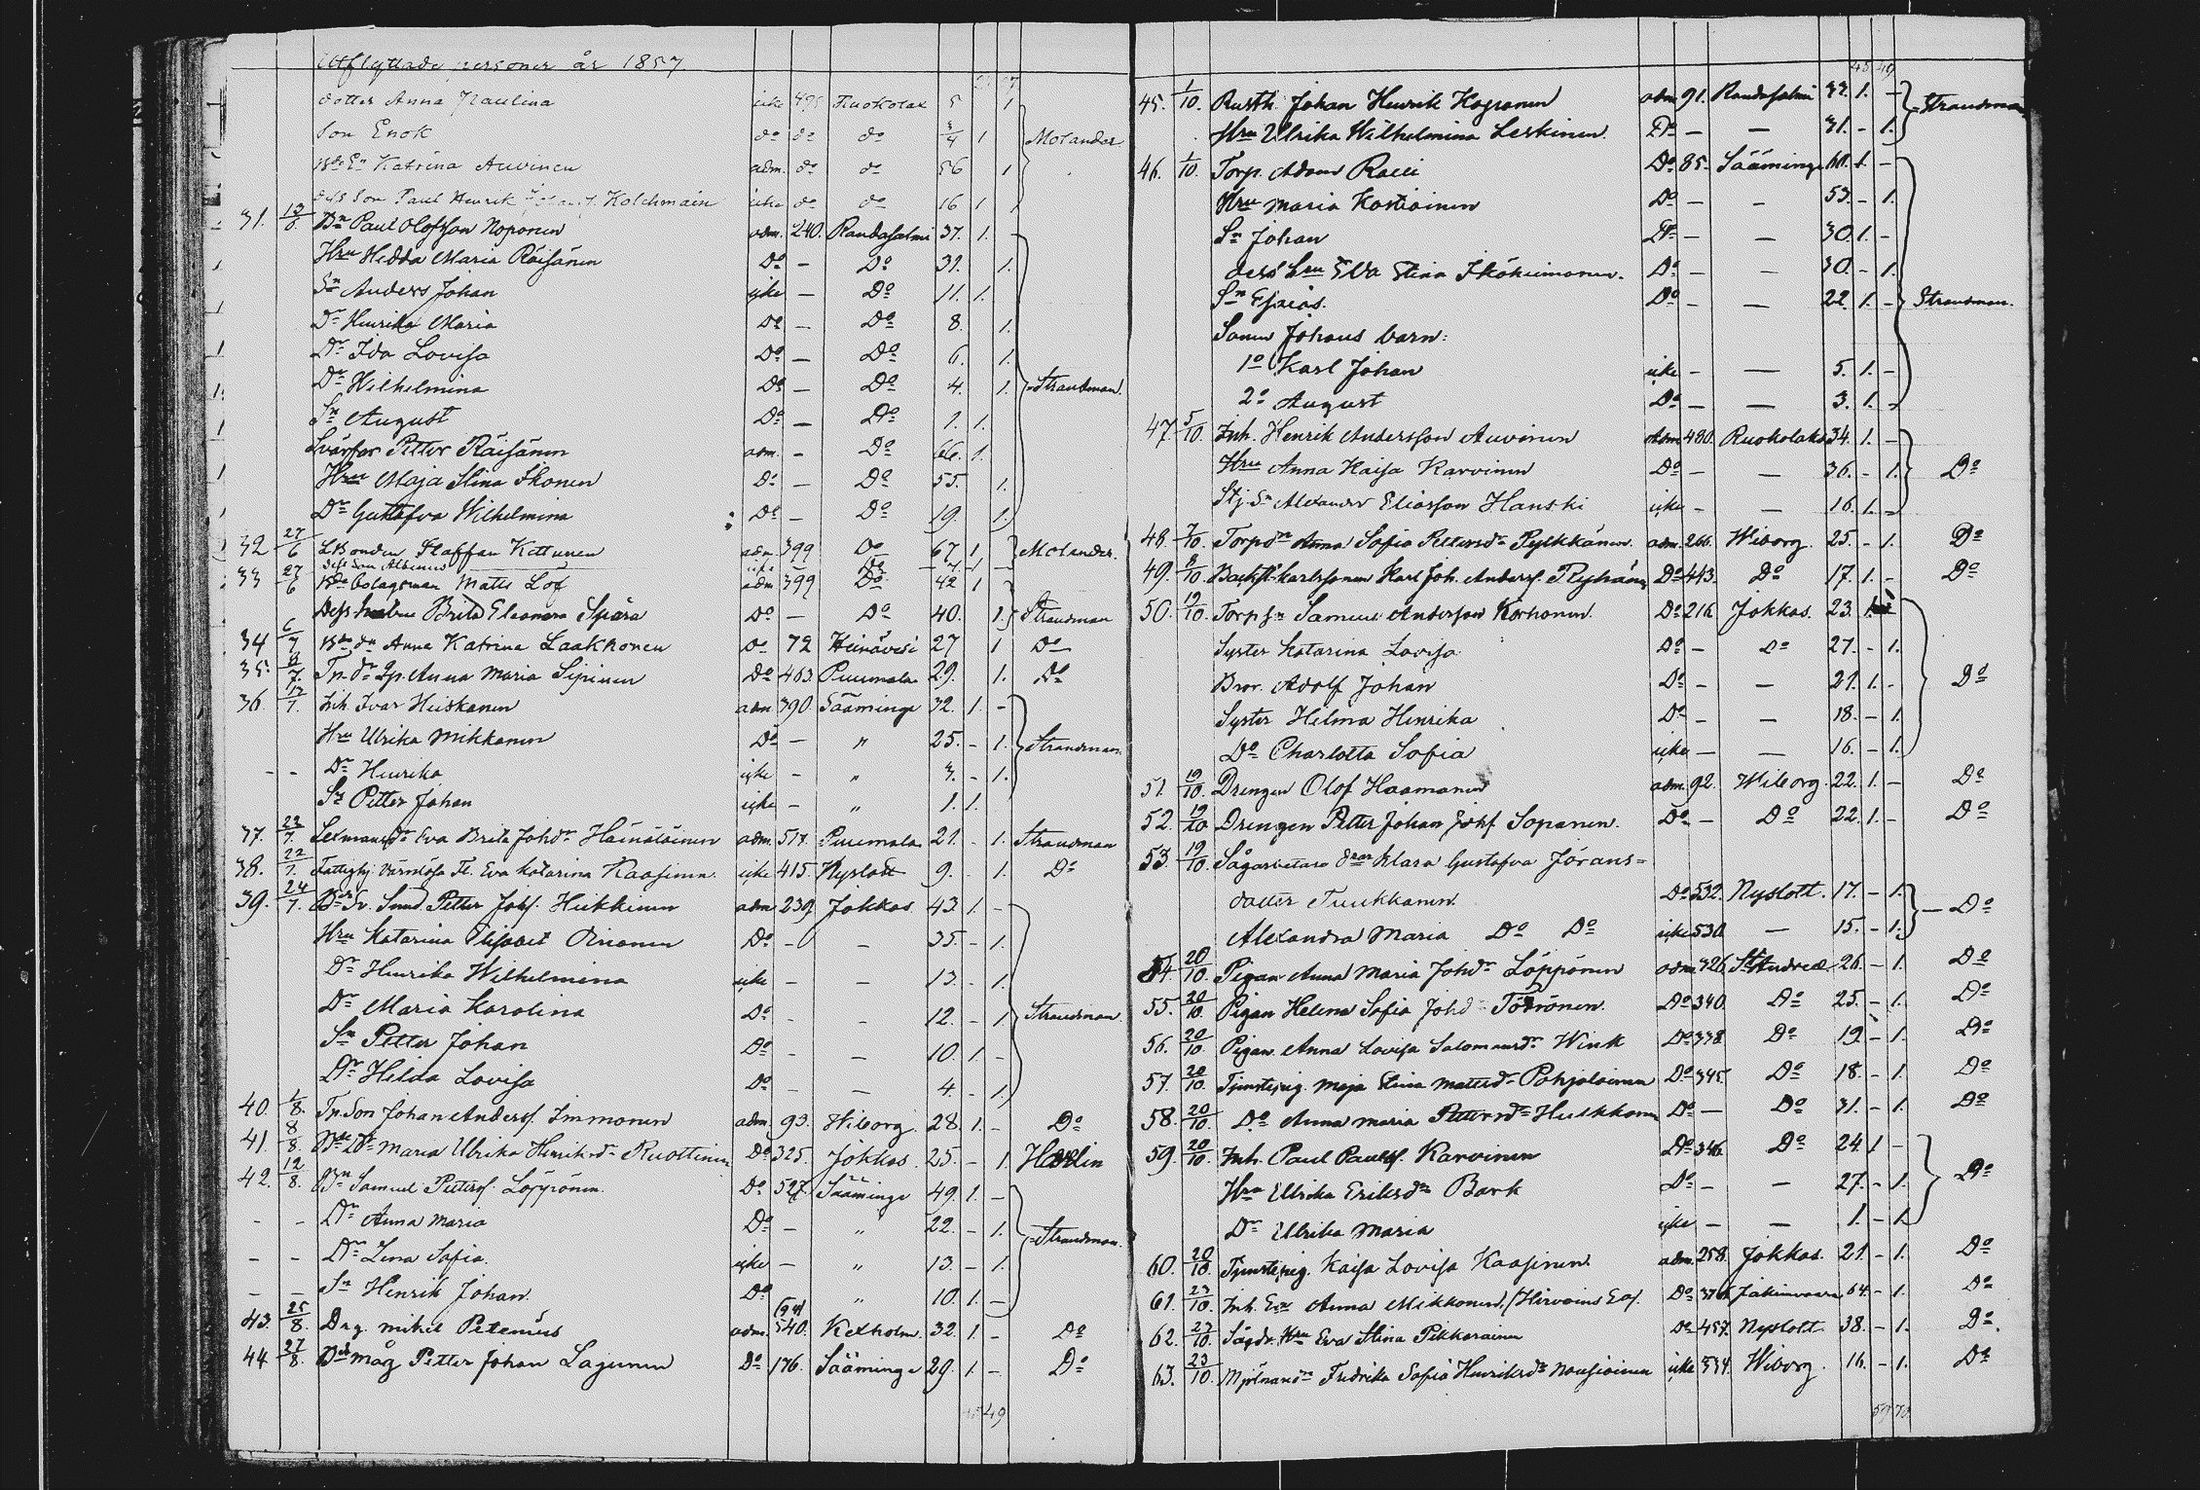 Utflyttade personer år 1857
dotter Anna Paulina icke 495 Ruokolax 5 1
Son Enok do do do 3/4 1 Molander
Katrina Auvinen adm. do do 56 1
dess son Paul Henrik Kolehmain icke do do 16 1
31. Bn Paul Olofsson Noponen adm. 240. Randasalmi 37. 1. –
Hru Hedda Maria Räisänen Do – Do 31. 1.
Sn Anders Johan icke – Do 11. 1.
Dr Henrika Maria Do – Do 8. 1.
Dr Ida Lovisa Do – Do 6. 1.
Dr Wilhelmina Do – Do 4. 1. Strandman.
Sn August Do – Do 1. 1.
Svärfar Petter Räisänen adm. – Do 66. 1.
Hru Maja Stina Ikonen Do – Do 55. 1.
Dr Gustafva Wilhelmina Do – Do 19. 1.
32 27/6 Staffan Kettunen adm 399 Do 67 1 Molander.
dess son Albinus icke – Do 1
33 27/6 Bolagsman Matts Löf adm 399 Do 42 1
Dess hustru Brita Eleonora Spära Do – Do 40. 1. Strandman
34 6/7 Anna Katrina Laakkonen Do 72 Heinävesi 27 1 Do
35. 8/7. Anna Maria Sipinen Do 463 Puumala 29. 1. Do
36. 13/7. Inh. Ivar Heiskanen adm 390. Sääminge 32. 1. –
Hru Ulrika Mikkonen Do – " 25. – 1. Strandman
– – Dr Henrika icke – " 3. – 1.
Sn Petter Johan icke – " 1. 1.
37. 23/7. Eva Brita Johdr Häinäläinen adm. 517. Puumala 21. – 1. Strandman
38. 22/7. Fattighj. värnlösa Fl. Eva Katarina Kaasinen icke 415. Nyslott 9. – 1. Do
39. 24/7. Petter Johs. Hikkinen adm 239 Jokkas 43. 1. –
Hru Katarina Elisabet Oinonen Do – – 35. – 1.
Dr Henrika Wilhelmina icke – – 13. – 1.
Dr Maria Karolina Do – – 12. – 1 Strandman
Sn Petter Johan Do – – 10. 1. –
Dr Hilda Lovisa Do – – 4. – 1.
40. 1/8. Tn. Son Johan Anderss. Immonen adm. 93. Wiborg. 28. 1. – Do
41. 8/8. Maria Ulrika Henriksdr Ruottinen Do 325. Jokkas 25. – 1.
42. 12/8. Bn Samuel Petterss. Löppönen Do 527. Sääminge 49. 1. –
– – Dr Anna Maria Do – " 22. – 1. Strandman.
– – Dr Lena Sofia. icke – " 13. – 1.
– – Sn Henrik Johan. Do " 10. 1. –
43. 25/8. Drg. Mikel Petenius adm. 540. Kexholm. 32. 1. – Do
44 27/8. måg Petter Johan Lagunen Do 176. Sääminge 29. 1. – Do
49
45. 1/10. Rusth. Johan Henrik Kogronen adm 91. Randasalmi 33. 1. – Strandman
Hru Ulrika Wilhelmina Leskinen. Do – – 31. – 1.
46. 1/10. Torp. Adam Do 85. Sääminge 60. 1. –
Hru Maria Kostiainen Do – – 53. – 1.
Sn Johan Do – – 30. 1. –
dess hru Eva Stina Ikäheimonen. Do – – 30. – 1.
Sn Esaias. Do – – 22. 1. – Strandman.
Sonen Johans barn:
1o Karl Johan icke – – 5. 1. –
2o August Do – – 3. 1. –
47. 5/10. Inh. Henrik Andersson Auvinen Adm 480. Ruokolaks 34. 1. –
Hru Anna Kaisa Karvinen Do – – 36. – 1. Do
Stj. Sn Alexander Eliasson Hanski icke – – 16. 1. –
48. 7/10. Torpdr Anna Sofia Pettersdr Pylkkänen. adm. 266. Wiborg. 25. – 1. Do
49. 8/10. Karl Joh. Anderss. Ryhänen Do 443. Do 17. 1. – Do
50. 19/10. Torps. Samuel Andersson Korhonen. Do 216. Jokkas. 23. 1.
Syster Katarina Lovisa Do – Do 27. – 1.
Bror. Adolf Johan Do – – 21. 1. – Do
Syster Helma Henrika Do – – 18. – 1.
Do Charlotta Sofia icke – – 16. – 1.
51. 19/10. Drengen Olof Haamanen adm. 92. Wiborg. 22. 1. – Do
52. 19/10 Drengen Petter Johan Johs. Sopanen. Do – Do 22. 1. – Do
53. 19/10. Sågarbetare drar Klara Gustafva Jörans=
dotter Tuukkanen. Do 532. Nyslott. 17. – 1. – Do
Alexandra Maria Do Do icke 530. – 15. – 1.
54. 20/10. Pigan Anna Maria Johdr Löppönen adm 326 St Andreæ 26. – 1. Do
55. 20/10. Pigan Helena Sofia Johd Törrönen. Do 340. Do 25. – 1. Do
56. 20/10. Pigan Anna Lovisa Salomonsdr Wink Do 338. Do 19. – 1. Do
57. 20/10. Tjenstepig. Maja Stina Mattsdr Pohjolainen Do 345. Do 18. – 1. Do
58. 20/10. Do Anna Maria Pettersdr Huskkonen Do – Do 31. – 1. Do
59. 20/10. Inh. Paul Paulss. Karvinen Do 346. Do 24. 1 –
Hru Ulrika Eriksdr Bark Do – – 27. – 1. Do
Dr Ulrika Maria icke – – 1. – 1.
60. 20/10. Tjenstepig. Kaisa Lovisa Kaasinen. adm. 258. Jokkas. 21. – 1. Do
61. 23/10. Inh. En Anna Mikkonen, Do Jakimvaara 64. – 1. Do
62. 23/10. Hru Eva Stina Pikkarainen Do 457. Nyslott 38. – 1. Do.
63. 23/10. Mjölnaredr Fredrika Sofia Henriksdr Nousiainen icke 334. Wiborg. 16. – 1. Do